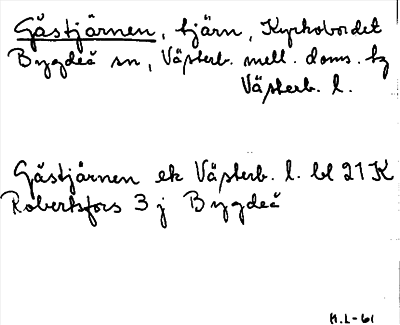 Gåstjärnen, tjärn, Kyrkobordet
Bygdeå sn, Västerb. mell. doms. hg
Västerb. l.
Gåstjärnen ek Västerb. l. bl 21 K
Robertsfors 3 j Bygdeå
H.L-61